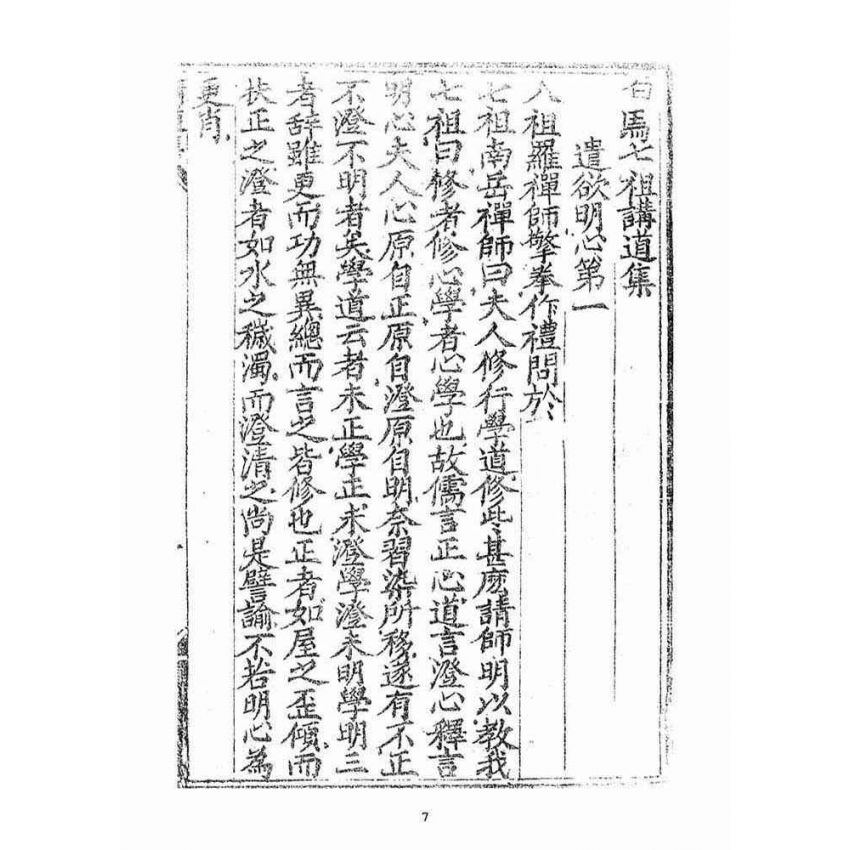 白馬七祖講道集
遣欲明心第一
八祖羅禪師擎拳作禮問於
七祖南岳禪師曰夫人修行學道修此甚麽請師明以教我
七祖曰修者修心學者心學也故儒言正心道言澄心釋言
明心夫人心原自正原自澄原自明奈習染所移遂有不正
不澄不明者矣學道云者未正學正未澄學澄未明學明三
者辞雖更而功無異總而言之皆修也正者如屋之歪傾而
扶正之澄者如水之穢濁而澄清之尚是譬諭不若明心為
更肖
7